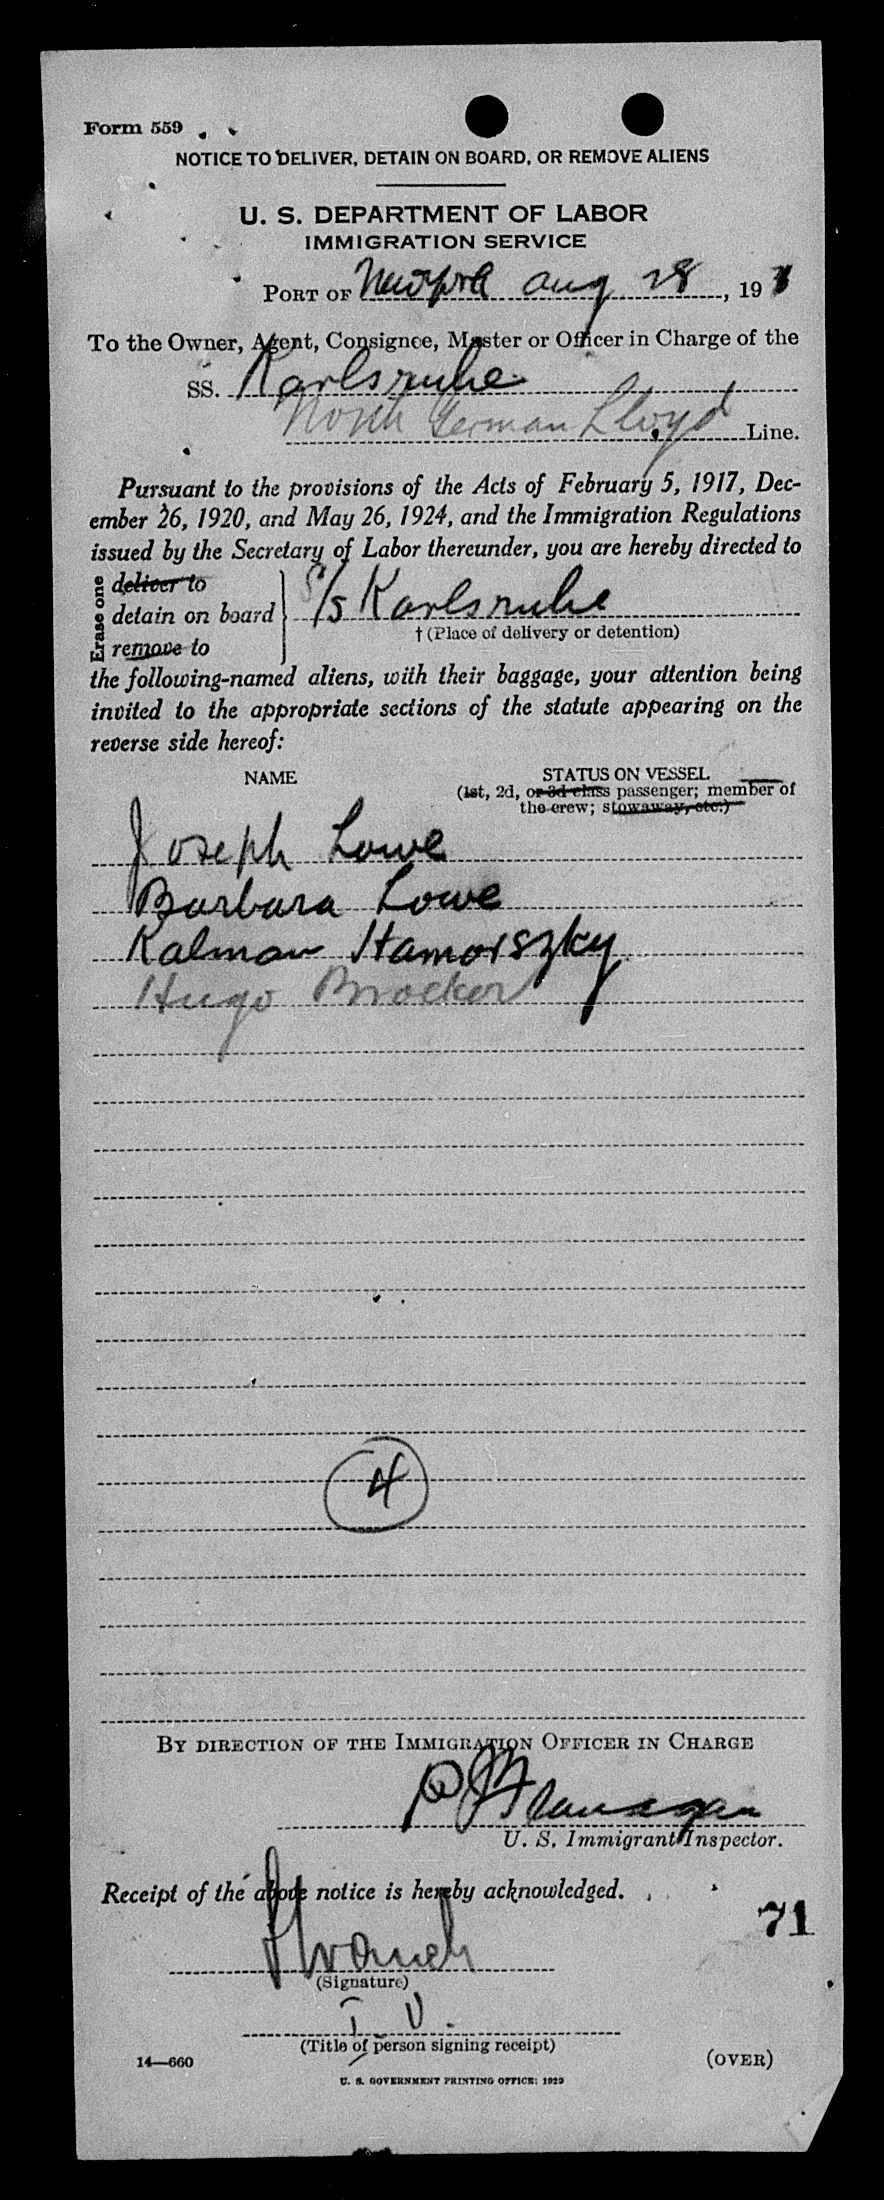 Form 559
NOTICE TO DELIVER, DETAIN ON BOARD, OR REMOVE ALIENS
U. S. DEPARTMENT OF LABOR
IMMIGRATION SERVICE
PORT OF New York Aug 28, 19
To the Owner, Agent, Consignee, Master or Officer in Charge of the
SS. Karlsruhe
North German Lloyd Line.
Pursuant to the provisions of the Acts of February 5, 1917, Dec-
ember 26, 1920, and May 26, 1924, and the Immigration Regulations
issued by the Secretary of Labor thereunder, you are hereby directed to
Erase one
deliver to
detain on board
remove to
S/S Karlsruhe
† (Place of delivery or detention)
the following-named aliens, with their baggage, your attention being
invited to the appropriate sections of the statute appearing on the
reverse side hereof:
NAME STATUS ON VESSEL
(1st, 2d, or 3d class passenger; member of
the crew; stowaway, etc.)
Joseph Lowe
Barbara Lowe
Kalman Hamorszky
Hugo Brocker
4
BY DIRECTION OF THE IMMIGRATION OFFICER IN CHARGE
P J Flanagan
U. S. Immigrant Inspector.
Receipt of the above notice is hereby acknowledged.
71
(Signature)
(Title of person signing receipt)
14—660 (OVER)
U. S. GOVERNMENT PRINTING OFFICE: 1929